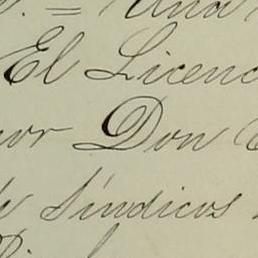 = Una
El Licenc
or Don
Síndicos